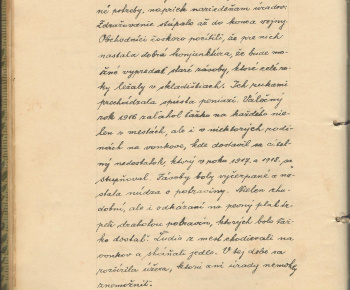 né potreby, napriek nariedeňam úradov.
Zdražovanie stúpalo až do konca vojny.
Obchodníci čoskoro pocítili, že pre nich
nastala dobrá konjunktúra, že bude mo-
žné vypredať staré zásoby, ktoré celé ro-
ky ležaly v skladištiach. Ich rukami
prechádzala spústa peniazí. Válečný
rok 1916 zaľahol ťažko na každého nie-
len v mestách, ale i v niektorých rodi-
nách na vonkove, kde dostavil sa citeľ-
ný nedostatok, ktorý v roku 1917. a 1918. sa
stupňoval. Zásoby boly vyčerpané a na-
stala núdza o potraviny. Nielen chu-
dobní, ale i odkázaní na pevný plat tr-
peli drahotou potravín, ktorých bolo ťaž-
ko dostať. Ľudia z miest chodievali na
vonkov a sháňali jedlo. V tej dobe sa
rozšírila úžera, ktorú ani úrady nemohly
znemožniť.